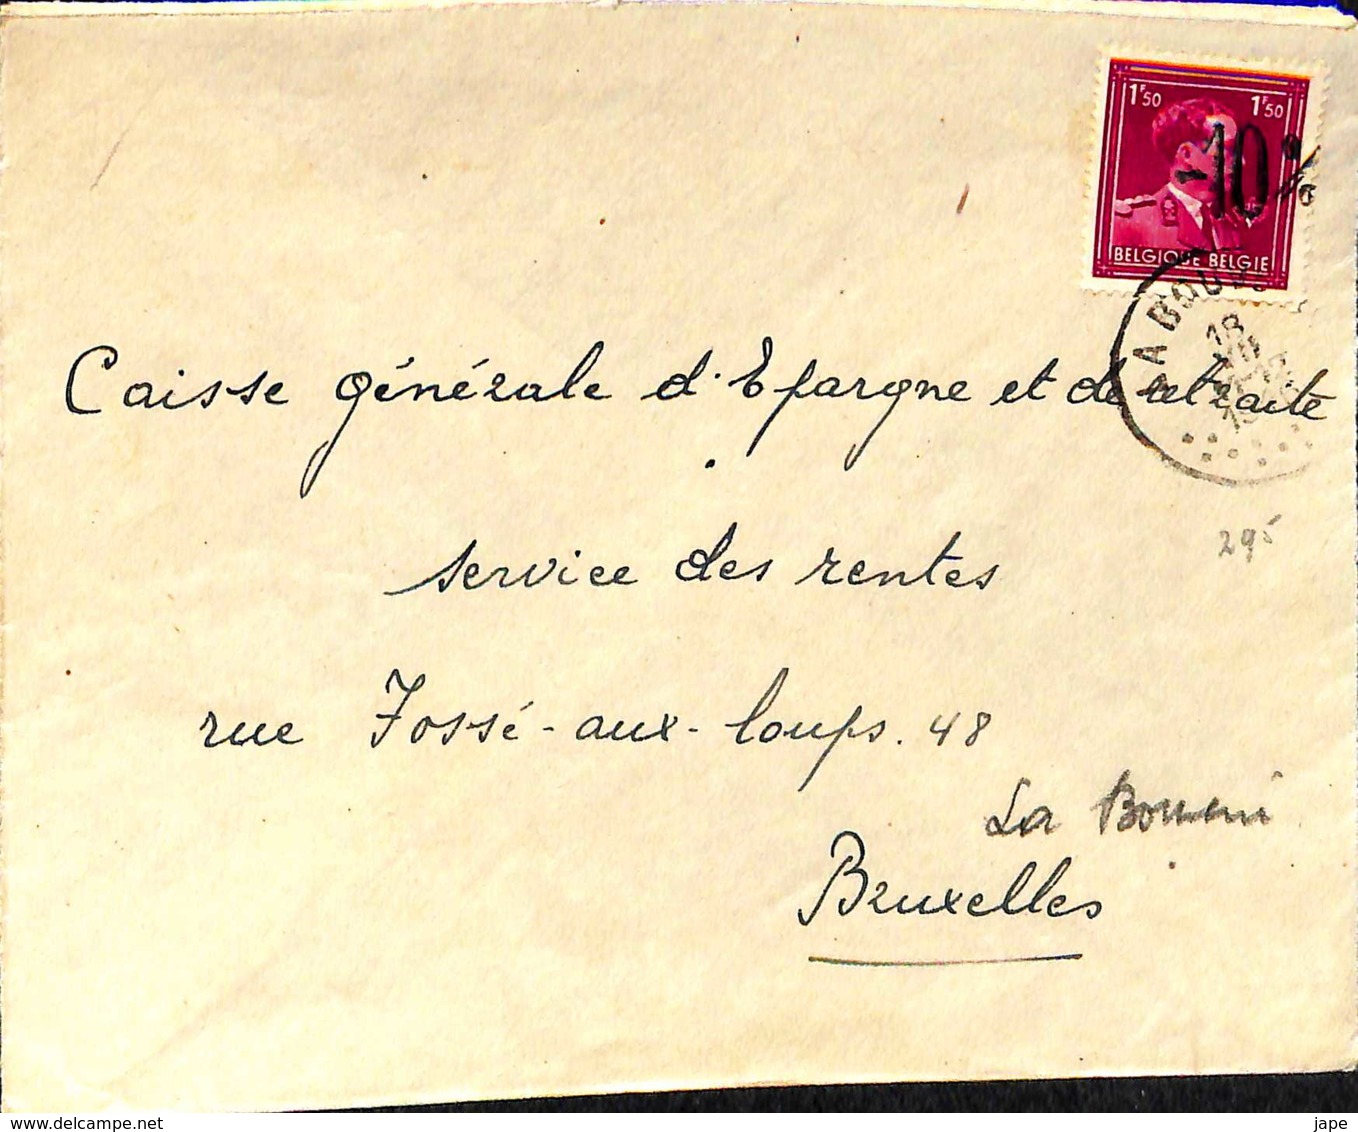 1F50 1F50
-10%
BELGIQUE BELGIE
LA BOUV
18
Caisse générale d'Epargne et de retraite
295
service des rentes
rue Fossé-aux-loups. 48
La
Bruxelles
jape